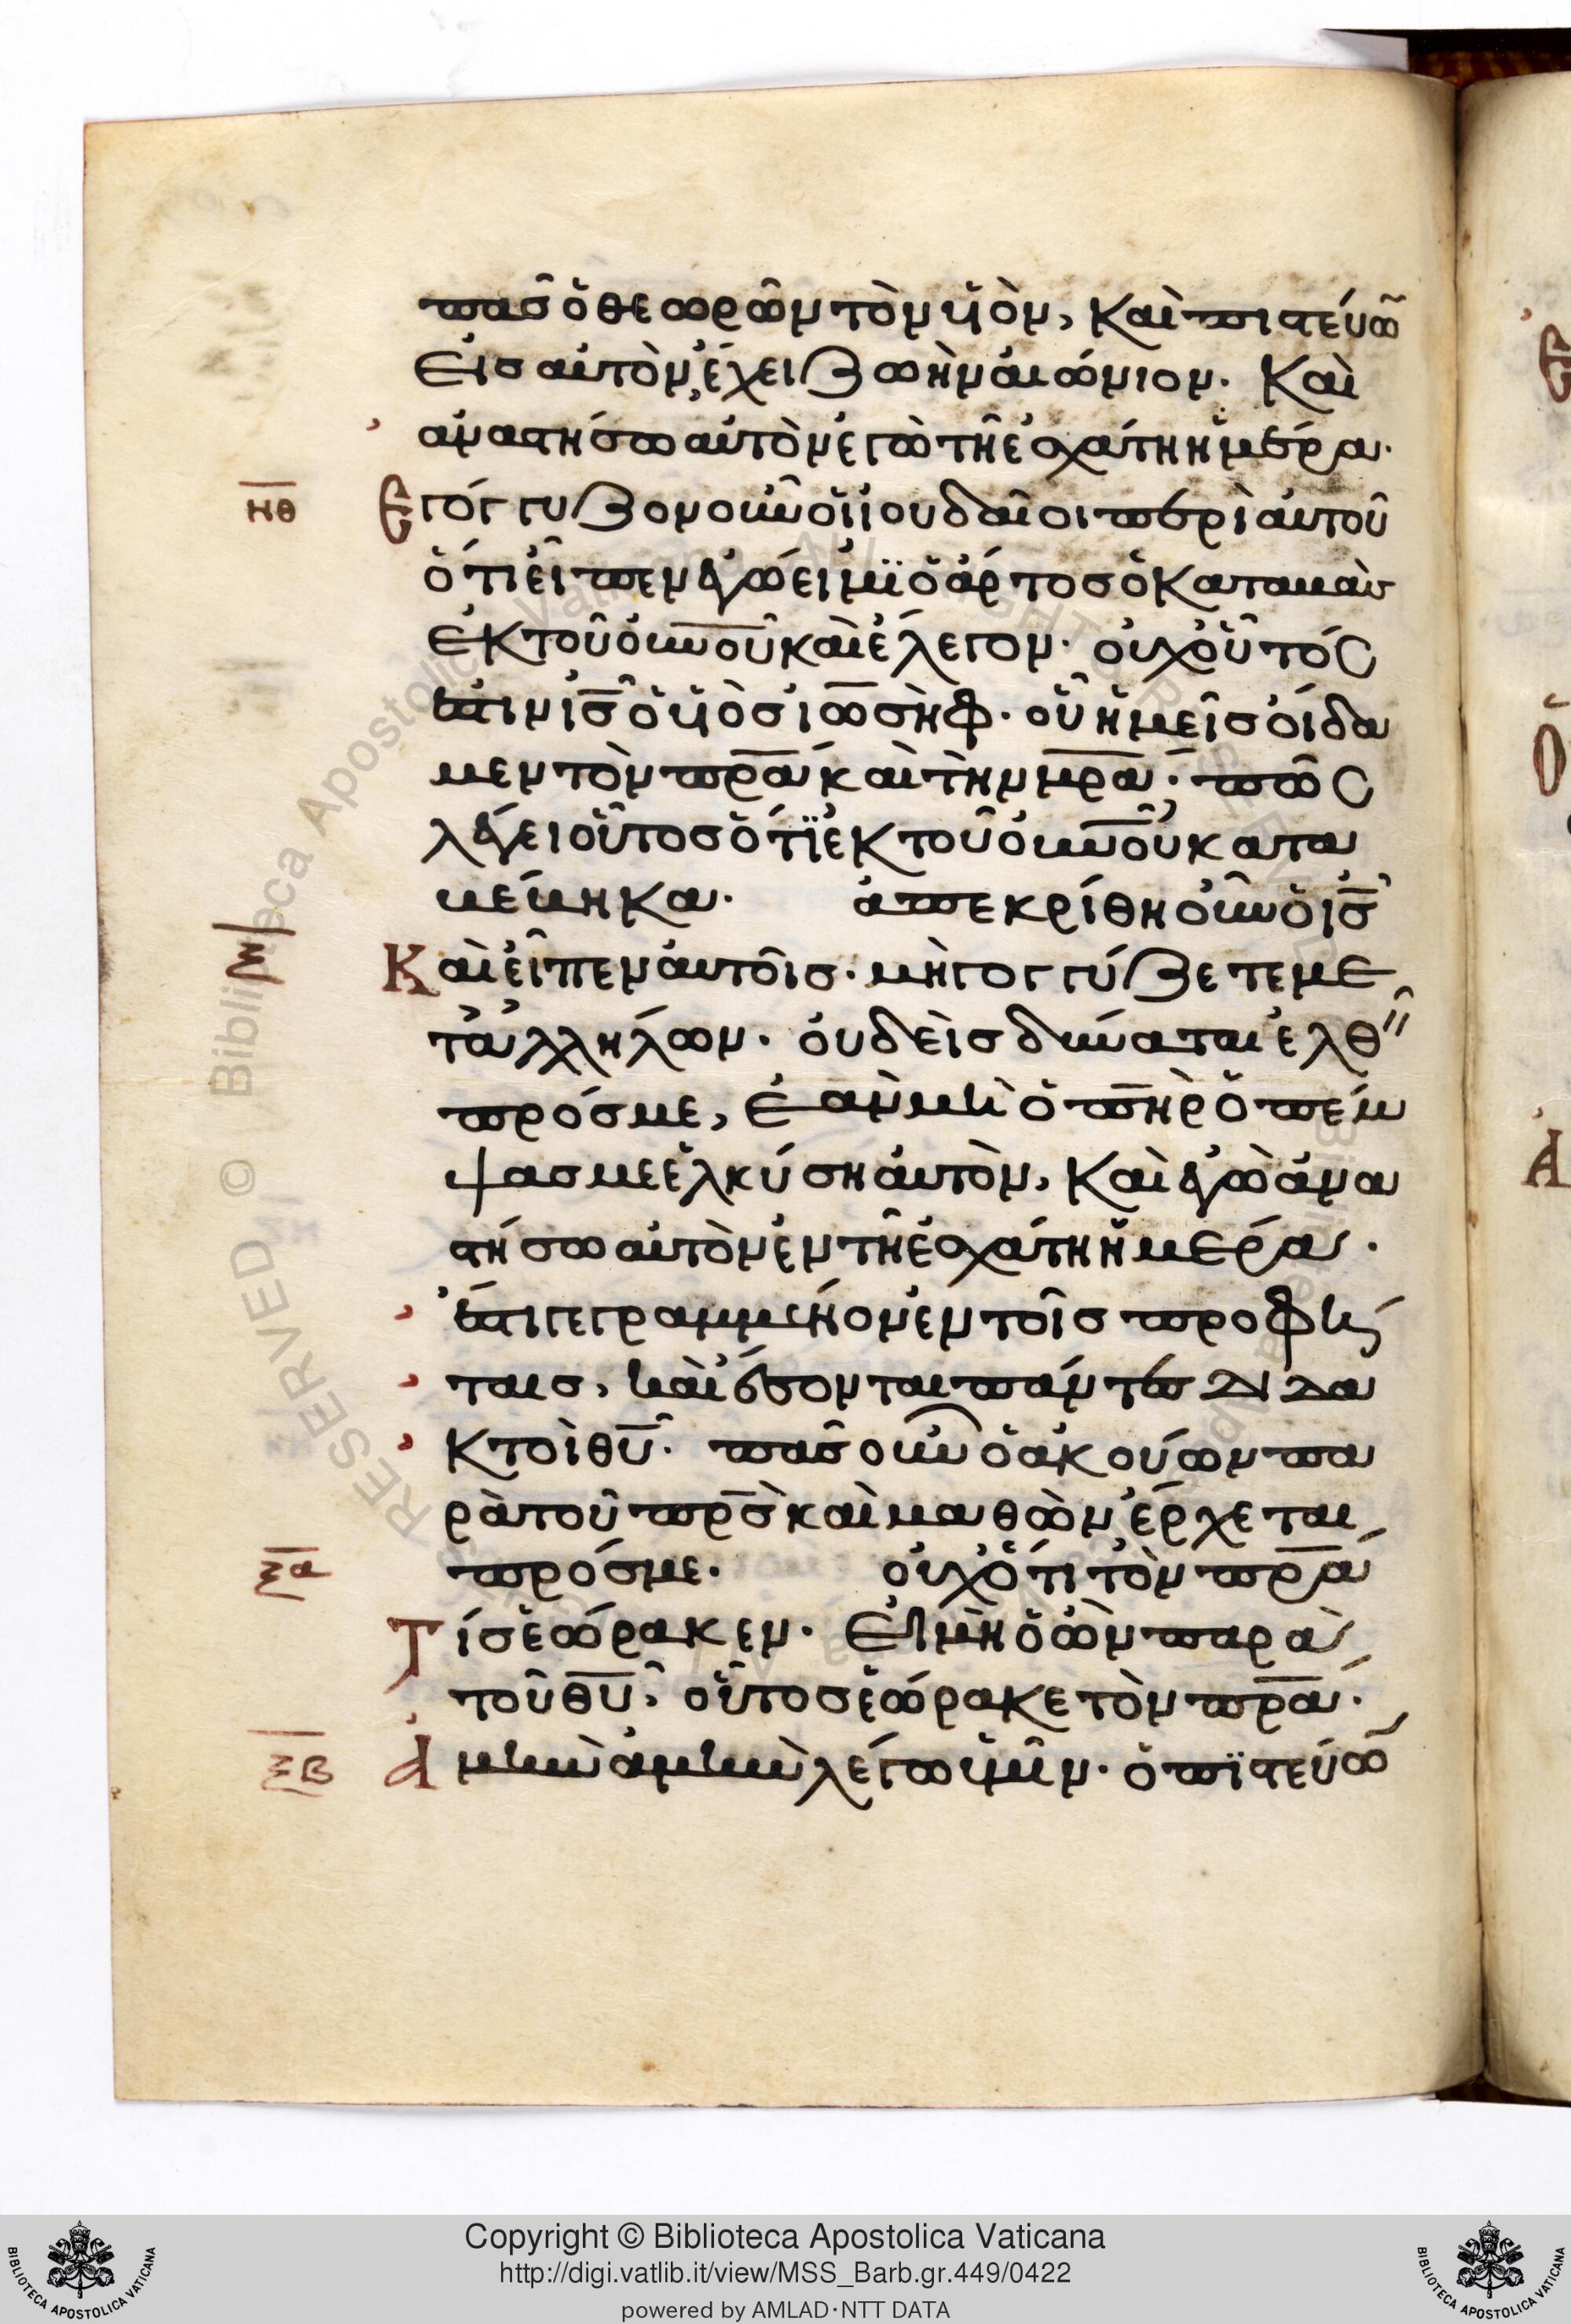 πᾶσ ὁ θεωρῶν τὸν ὑ̅ὸν, καὶ πιστεύω̅
εἰσ αὐτὸν, ἔχει ζωὴν αἰώνιον. Καὶ
ἀναστήσω αὐτὸν ἐγὼ τῆ ἐσχάτη ἡμέρα.
ν̅θ̅ Ἐγόγγυζον οὖν οἱ ἰουδαῖοι περὶ αὐτοῦ
ὅτι εἶπεν ἐγώ εἰμϊ ὁ ἄρτοσ ὁ καταβὰσ
ἐκ τοῦ ο̅υ̅ν̅ο̅υ̅ καὶ ἔλεγον. οὐχ οὗτόσ
ἐστιν ι̅σ̅ ὁ ὑ̅ὸσ ἰωσὴφ. οὗ ἡμεῖσ οἴδα
μεν τὸν π̅ρ̅α̅ καὶ τὴν μ̅ρ̅α̅. πῶσ
λέγει οὗτοσ ὅτϊ ἐκ τοῦ ο̅υ̅ν̅ο̅υ̅ κατα
βέβηκα. ἀπεκρίθη οὖν ὁ ι̅σ̅
ξ̅ Καὶ εἶπεν αὐτοῖσ. μὴ γογγύζετε με
τ' ἀλλήλων. οὐδεὶσ δύναται ἐλθεῖν
πρόσ με, ἐὰν μὴ ὁ π̅η̅ρ̅ ὁ πέμ
ψασ με ἑλκύση αὐτὸν, καὶ ἐγὼ ἀνα
στήσω αὐτὸν ἐν τῆ ἐσχάτη ἡμέρα.
ἔστι γεγραμμένον ἐν τοῖσ προφή
ταισ, καὶ ἔσονται πάντεσ διδα
κτοὶ θ̅υ̅. πᾶσ οὖν ὁ ἀκούων πα
ρὰ τοῦ π̅ρ̅σ̅ καὶ μαθὼν, ἔρχεται
ξ̅α̅ πρόσ με. οὐχ ὅτι τὸν π̅ρ̅α̅
Τίσ ἑώρακεν. εἰ μὴ ὁ ὢν παρὰ
τοῦ θ̅υ̅, οὗτοσ ἑώρακε τὸν π̅ρ̅α̅.
ξ̅β̅ Ἀμὴν ἀμὴν λέγω ὑμῖν. ὁ πϊστεύω̅
Copyright © Biblioteca Apostolica Vaticana
http://digi.vatlib.it/view/MSS_Barb.gr.449/0422
powered by AMLAD·NTT DATA